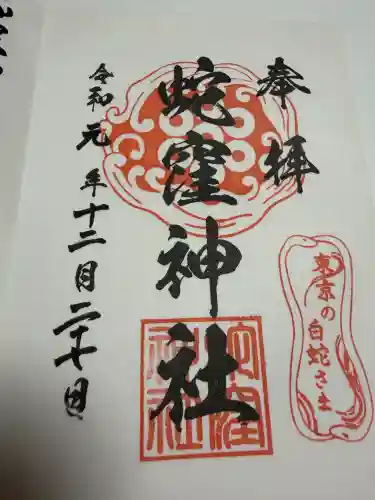 奉拝
蛇窪神社
令和元年十二月二十七日
東京の白蛇さま
蛇窪
神社